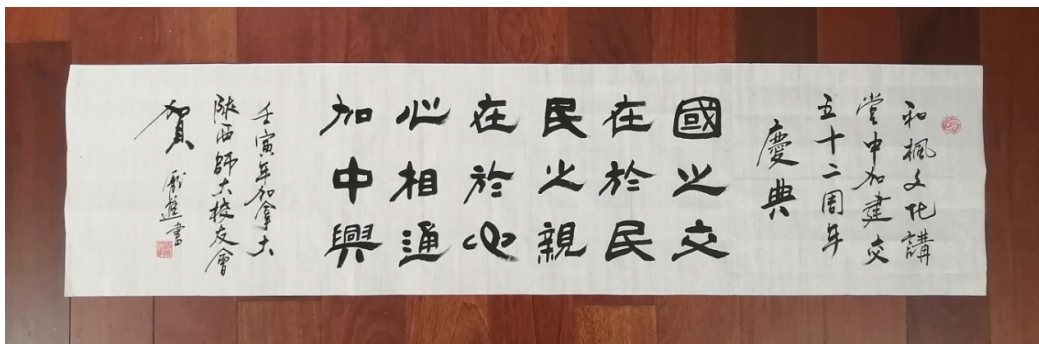 和楓文化講
堂中加建交
五十二周年
慶典
國之交
在於民
民之親
在於心
心相通
加中興
壬寅年加拿大
陝西師大校友會
賀
書